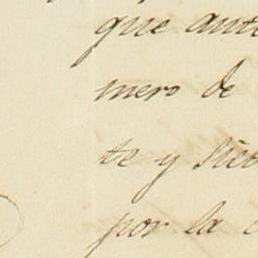 que ante
mero de
te y siete
por la